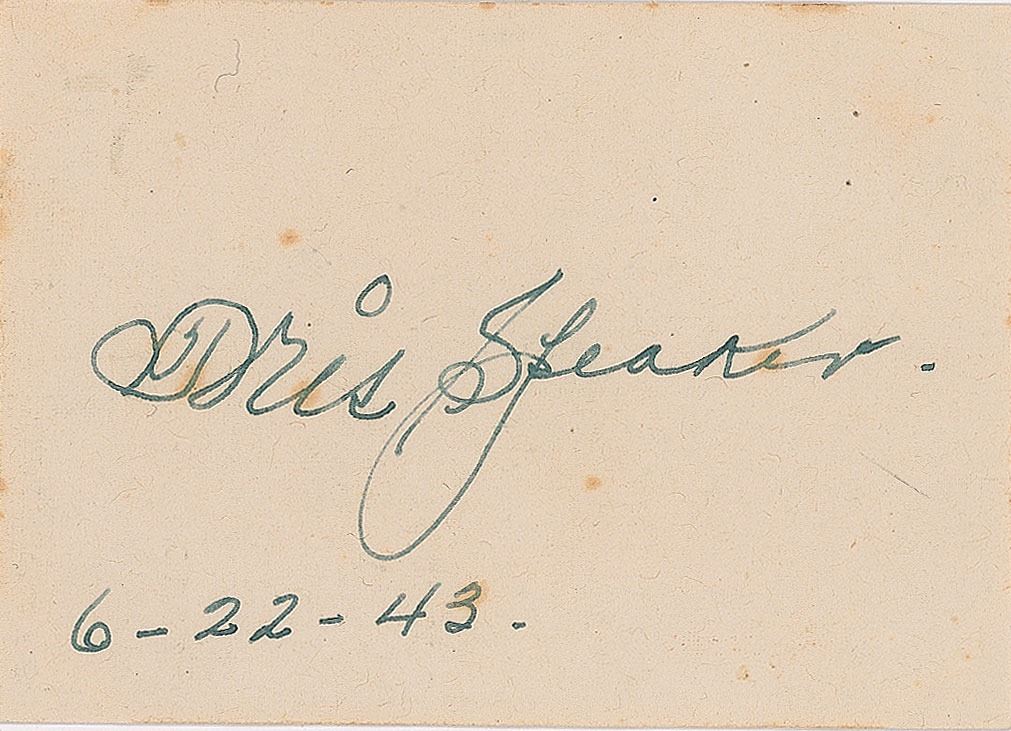 Tris Speaker.
6-22-43.